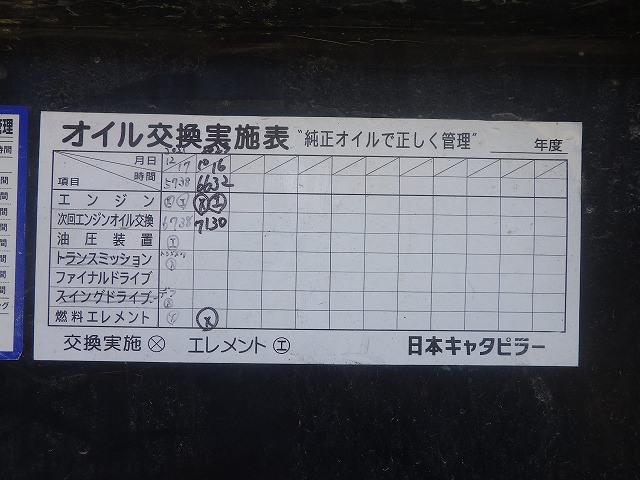 オイル交換実施表 "純正オイルで正しく管理" 年度
月日 12/17 10/16
項目 時間 5738 6632
エンジン Ⓧ エ Ⓧ エ
次回エンジンオイル交換 6738 7130
油圧装置 エ
トランスミッション
ファイナルドライブ
スイングドライブ
燃料エレメント Ⓧ Ⓧ
交換実施 Ⓧ エレメント エ 日本キャタピラー
管理
時間
間
間
間
間
間
間
ング